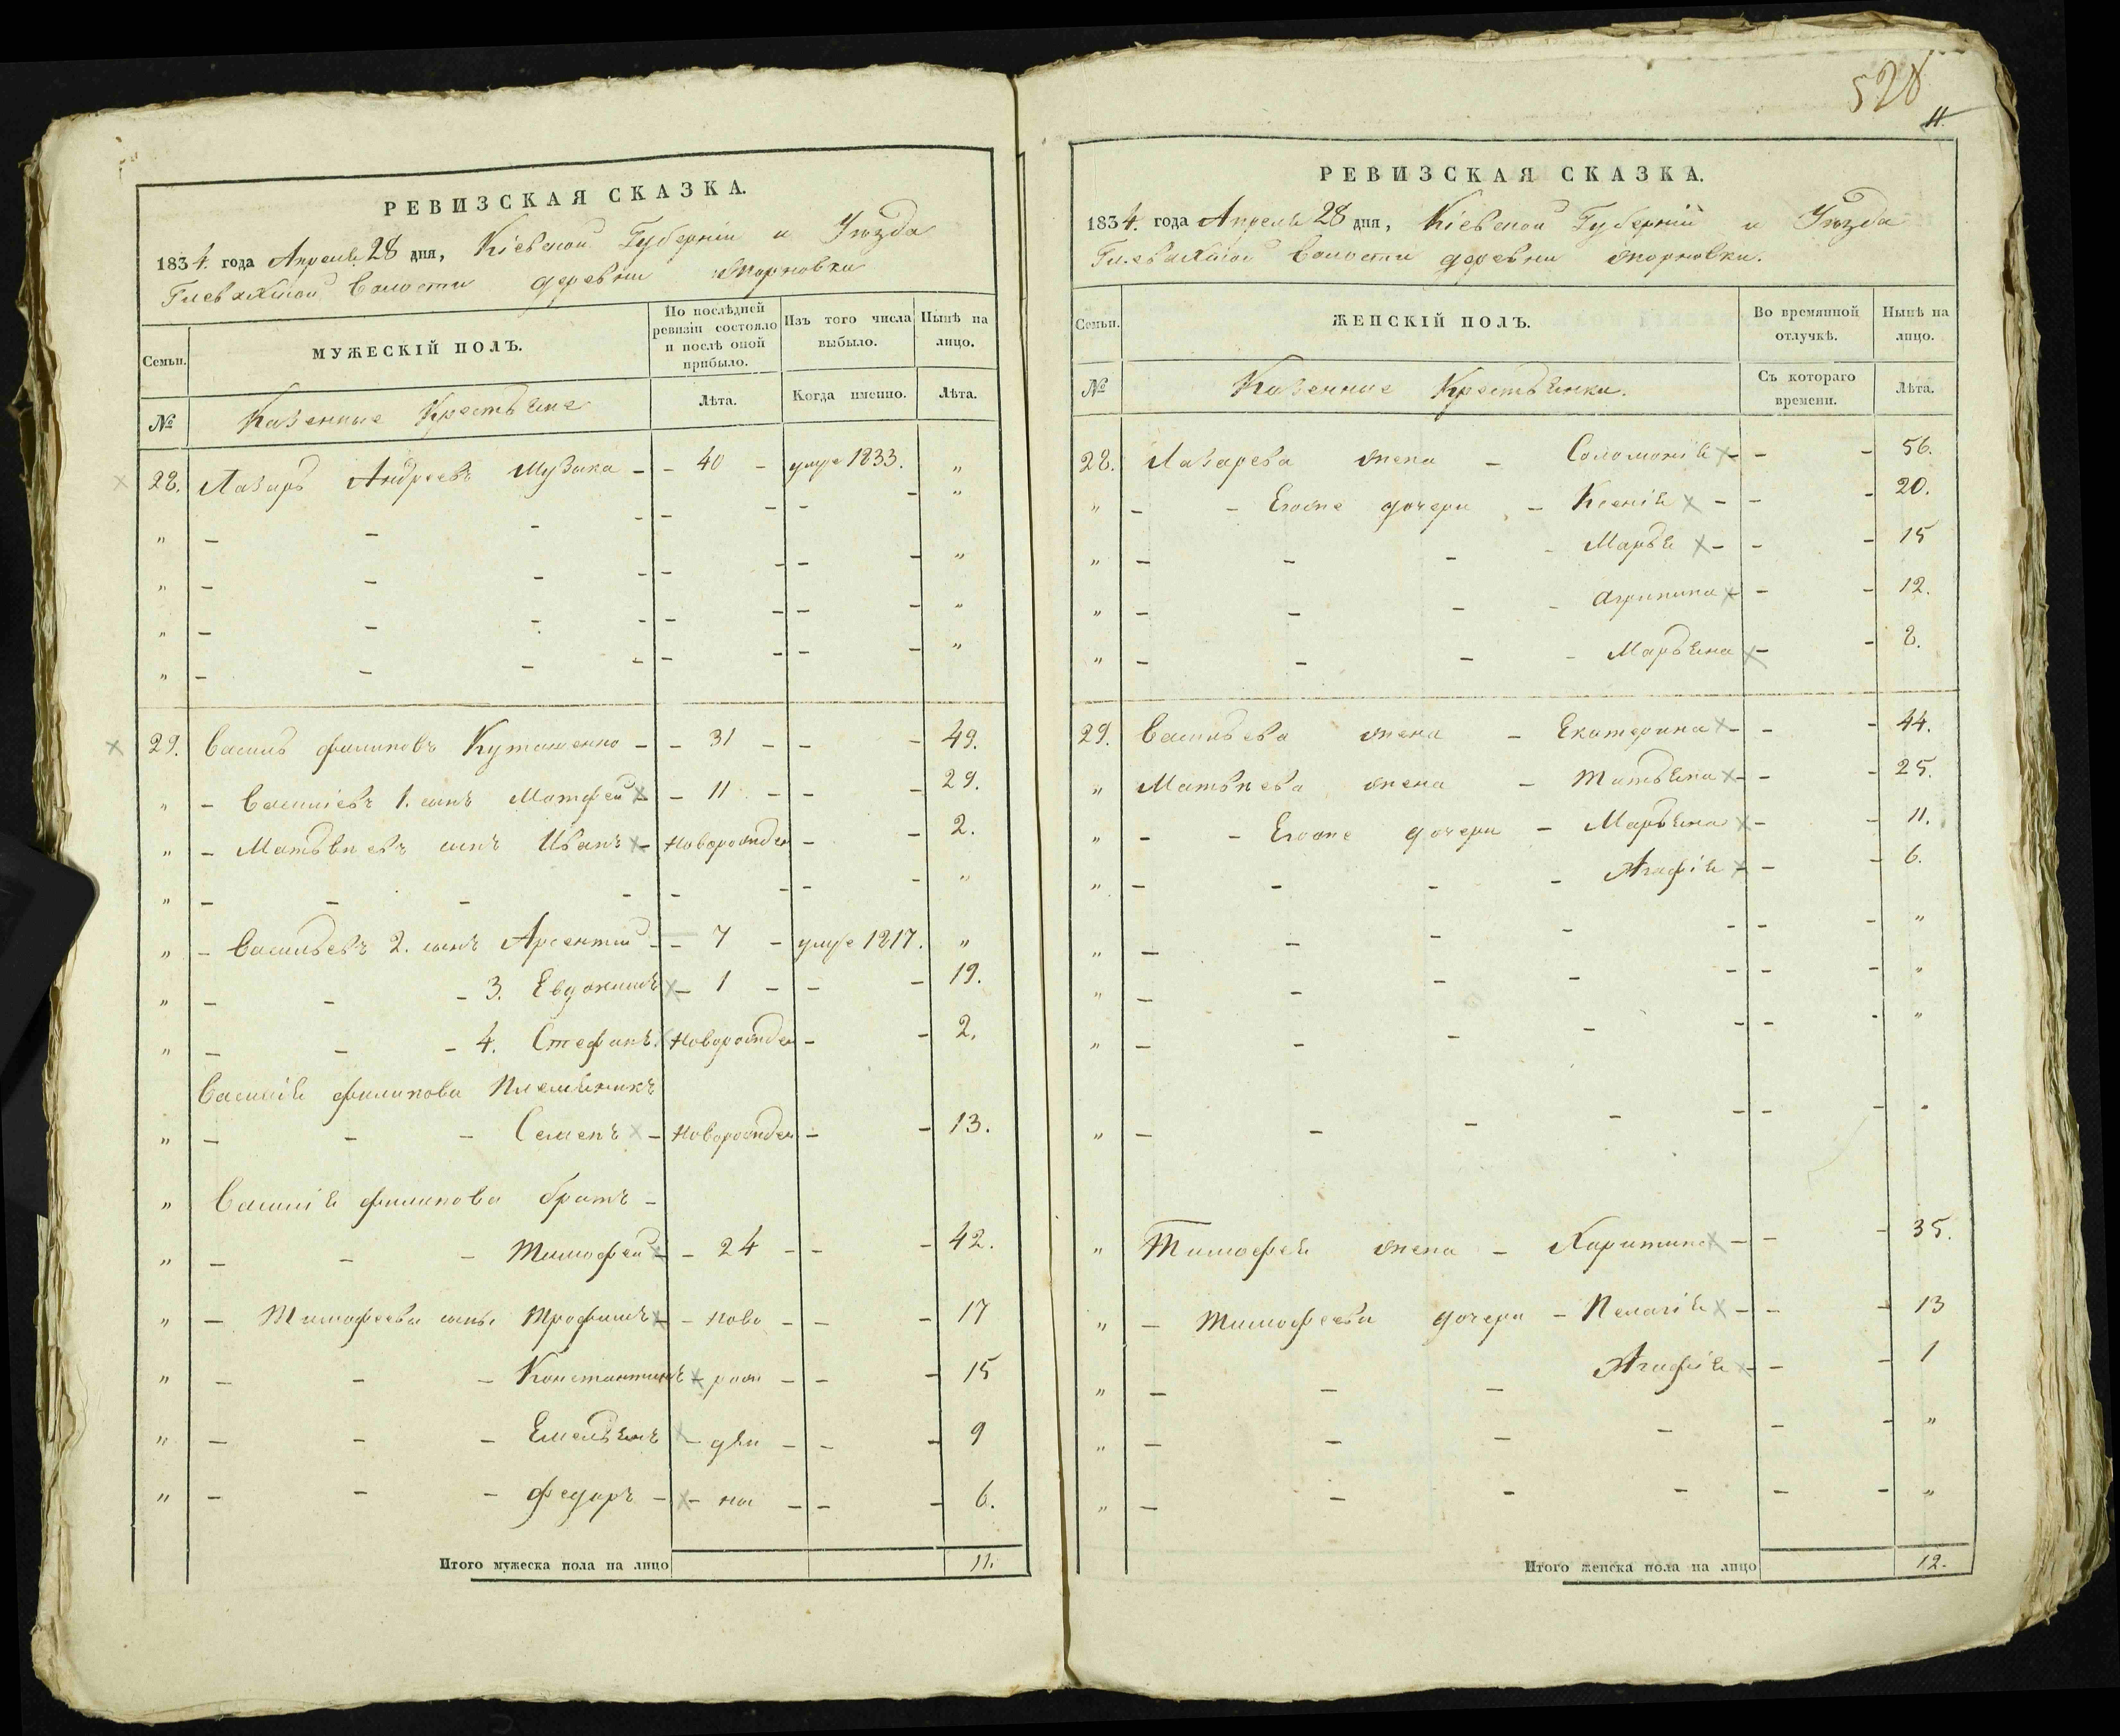 528
11.
РЕВИЗСКАЯ СКАЗКА.
1834. года Апреля 28 дня, Кіевской Губерніи и Уѣзда
Глевахской Волости деревни Жорновки
Семьи.
МУЖЕСКІЙ ПОЛЪ.
По послѣдней ревизіи состояло и послѣ оной прибыло.
Изъ того числа выбыло.
Нынѣ на лицо.
№
Казенные Крестьяне
Лѣта.
Когда именно.
Лѣта.
28. Лазарь Андреевъ Музыка - - 40 - умре 1833. „
„ - - - - - - - - „
„ - - - - - - - - „
„ - - - - - - - - „
„ - - - - - - - - „
29. Василь Филиповъ Кутаменко - - 31 - - - 49.
„ - Василіевъ 1. сынъ Матфей - - 11 - - - 29.
„ - Матвѣевъ сынъ Иванъ - Новорожден - - 2.
„ - - - - - - - - „
„ - Васильевъ 2. сынъ Арсентий - - 7 - умре 1817. „
„ - - - 3. Евдокимъ - 1 - - - 19.
„ - - - 4. Стефанъ. Новорожден - - 2.
Василія Филипова Племянникъ
„ - - - Семенъ - Новорожден - - 13.
„ Василія Филипова братъ -
„ - - - Тимофей - - 24 - - - 42.
„ - Тимофеева сынъ. Трофимъ - - ново - - - 17
„ - - - Константинъ - рож - - - 15
„ - - - Емельянъ - де - - - 9
„ - - - Федоръ - - на - - - 6.
Итого мужеска пола на лицо 11.
РЕВИЗСКАЯ СКАЗКА.
1834. года Апреля 28 дня, Кіевской Губерніи и Уѣзда
Глевахской Волости деревни Жорновки.
Семьи.
ЖЕНСКІЙ ПОЛЪ.
Во времянной отлучкѣ.
Нынѣ на лицо.
№
Казенные Крестьянки.
Съ котораго времени.
Лѣта.
28. Лазарева жена - Соломонія - - - 56.
„ - - Егоже дочери - Ксенія - - - 20.
„ - - - - Марья - - - 15
„ - - - - Агрипина - - - 12.
„ - - - - Марьяна - - 8.
29. Васильева жена - Екатерина - - - 44.
„ Матвѣева жена - Татьяна - - - 25.
„ - - Егоже дочери - Марьяна - - 11.
„ - - - - Агафія - - - 6.
„ - - - - - - „
„ - - - - - - „
„ - - - - - - „
„ - - - - - - „
„ Тимофея жена - Харитина - - - 35.
„ - Тимофеева дочери - Пелагія - - - 13
„ - - - Агафія - - - 1
„ - - - - - - „
„ - - - - - - „
Итого женска пола на лицо 12.